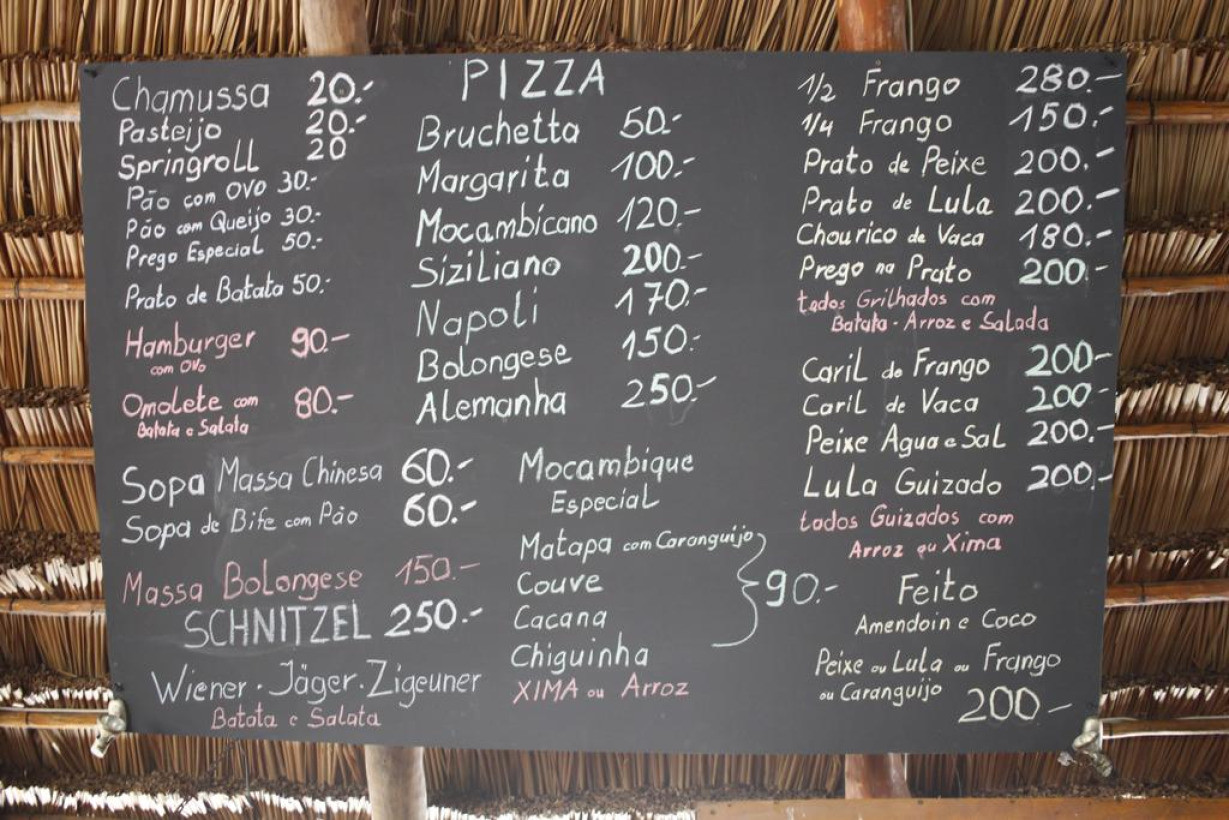 Chamussa 20.-
Pasteijo 20.-
Springroll 20
Pão com OVO 30.-
Pão com Queijo 30.-
Prego Especial 50.-
Prato de Batata 50.-
Hamburger 90.-
com OVO
Omolete com 80.-
Batata e Salata
Sopa Massa Chinesa 60.-
Sopa de Bife com Pão 60.-
Massa Bolongese 150.-
SCHNITZEL 250.-
Wiener. Jäger. Zigeuner
Batata e Salata
PIZZA
Bruchetta 50.-
Margarita 100.-
Mocambicano 120.-
Siziliano 200.-
Napoli 170.-
Bolongese 150.-
Alemanha 250.-
Mocambique
Especial
Matapa com Caranguijo
Couve
Cacana
Chiguinha
90.-
XIMA ou Arroz
1/2 Frango 280.-
1/4 Frango 150.-
Prato de Peixe 200.-
Prato de Lula 200.-
Chourico de Vaca 180.-
Prego no Prato 200.-
todos Grilhados com
Batata - Arroz e Salada
Caril de Frango 200-
Caril de Vaca 200-
Peixe Agua e Sal 200.-
Lula Guizado 200.-
todos Guizados com
Arroz ou Xima
Feito
Amendoin e Coco
Peixe ou Lula ou Frango
ou Caranguijo
200-